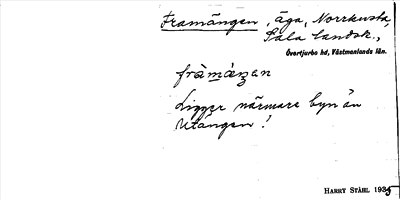 Framängen, äga, Norrkusta,
Sala landsk.,
Övertjurbo hd, Västmanlands län.
fràmáŋan
Ligger närmare byn än
Utängen!
HARRY STÅHL 1935